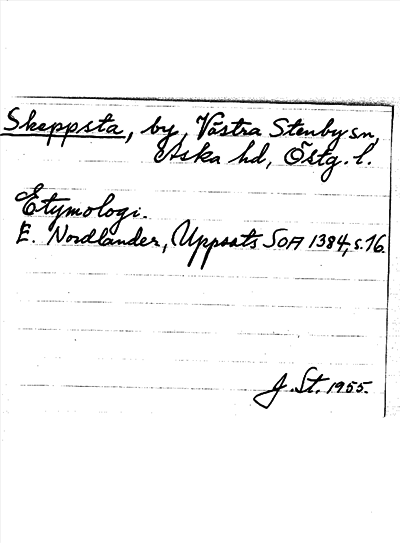 Skeppsta, by, Västra Stenby sn,
Aska hd, Östg. l.
Etymologi.
E. Nordlander, Uppsats SOA 1384, s. 16.
J. St. 1955.